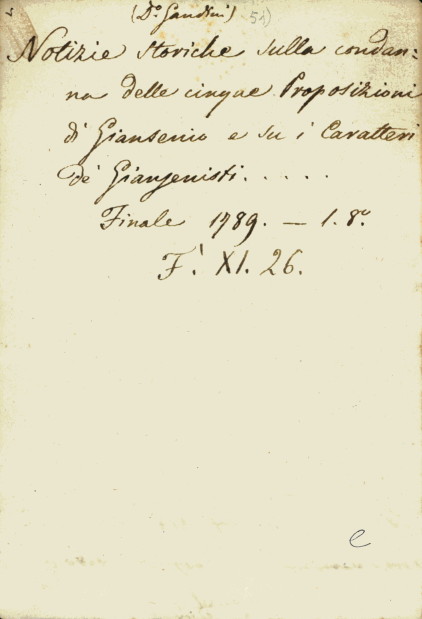 (D.º Gandini) 51)
Notizie storiche sulla condan=
na delle cinque Proposizioni
di Giansenio e su i Caratteri
de' Giansenisti. . . . .
Finale 1789. — 1. 8.º
F. XI. 26.
e